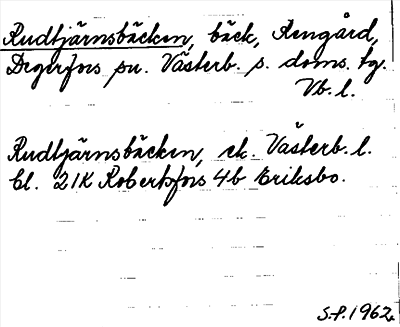 Rudtjärnsbäcken, bäck, Rengård,
Degerfors sn. Västerb. s. doms. tg.
Vb. l.
Rudtjärnsbäcken, ek. Västerb. l.
Bl. 21K Robertsfors 4b Eriksbo.
S.P. 1962.